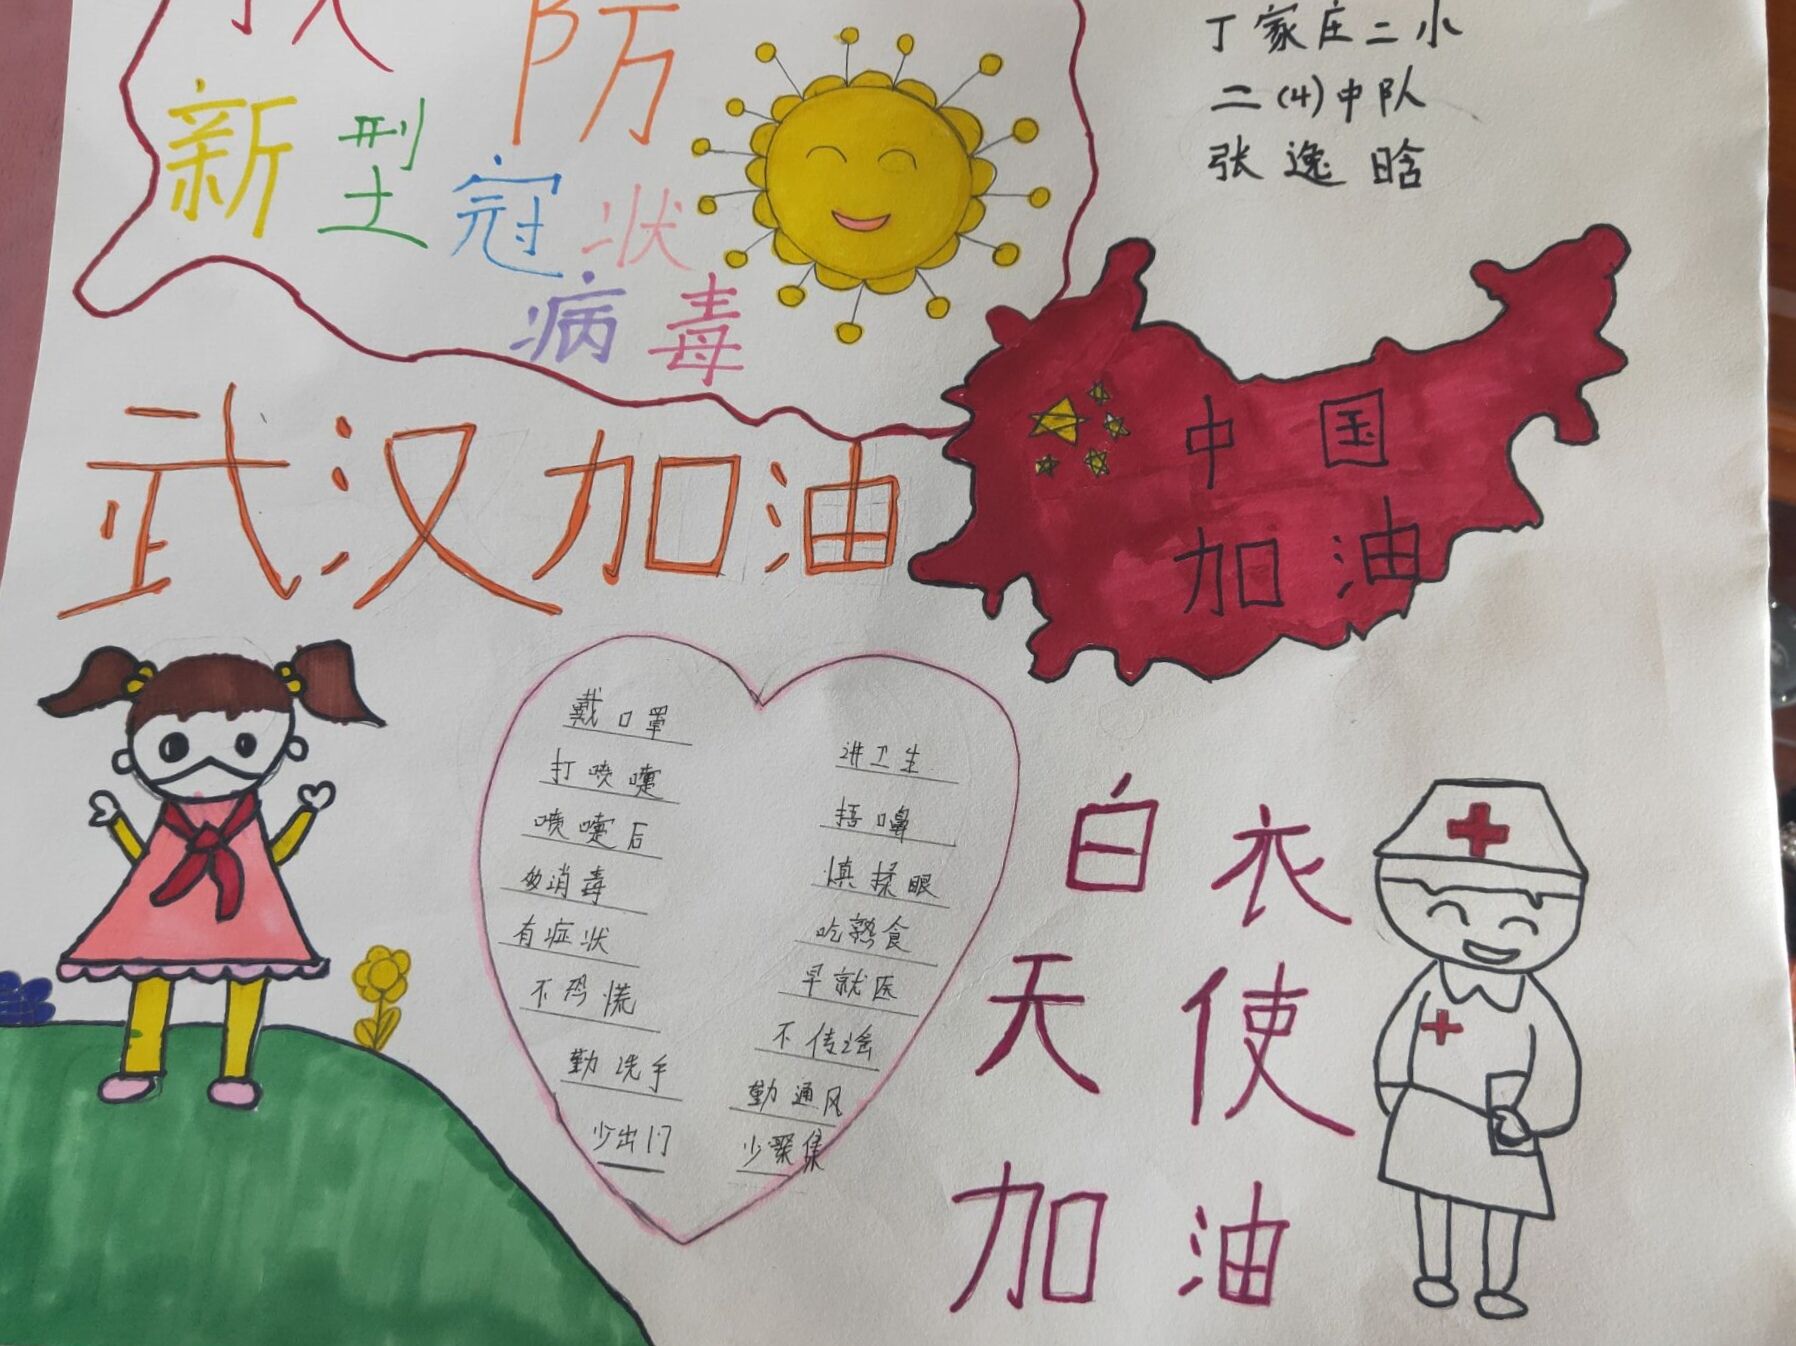 防
新型冠状
病毒
丁家庄二小
二(4)中队
张逸晗
武汉加油
中国
加油
戴口罩
讲卫生
打喷嚏
捂口鼻
喷嚏后
慎揉眼
勤消毒
吃熟食
有症状
早就医
不恐慌
不传谣
勤洗手
勤通风
少出门
少聚集
白衣
天使
加油